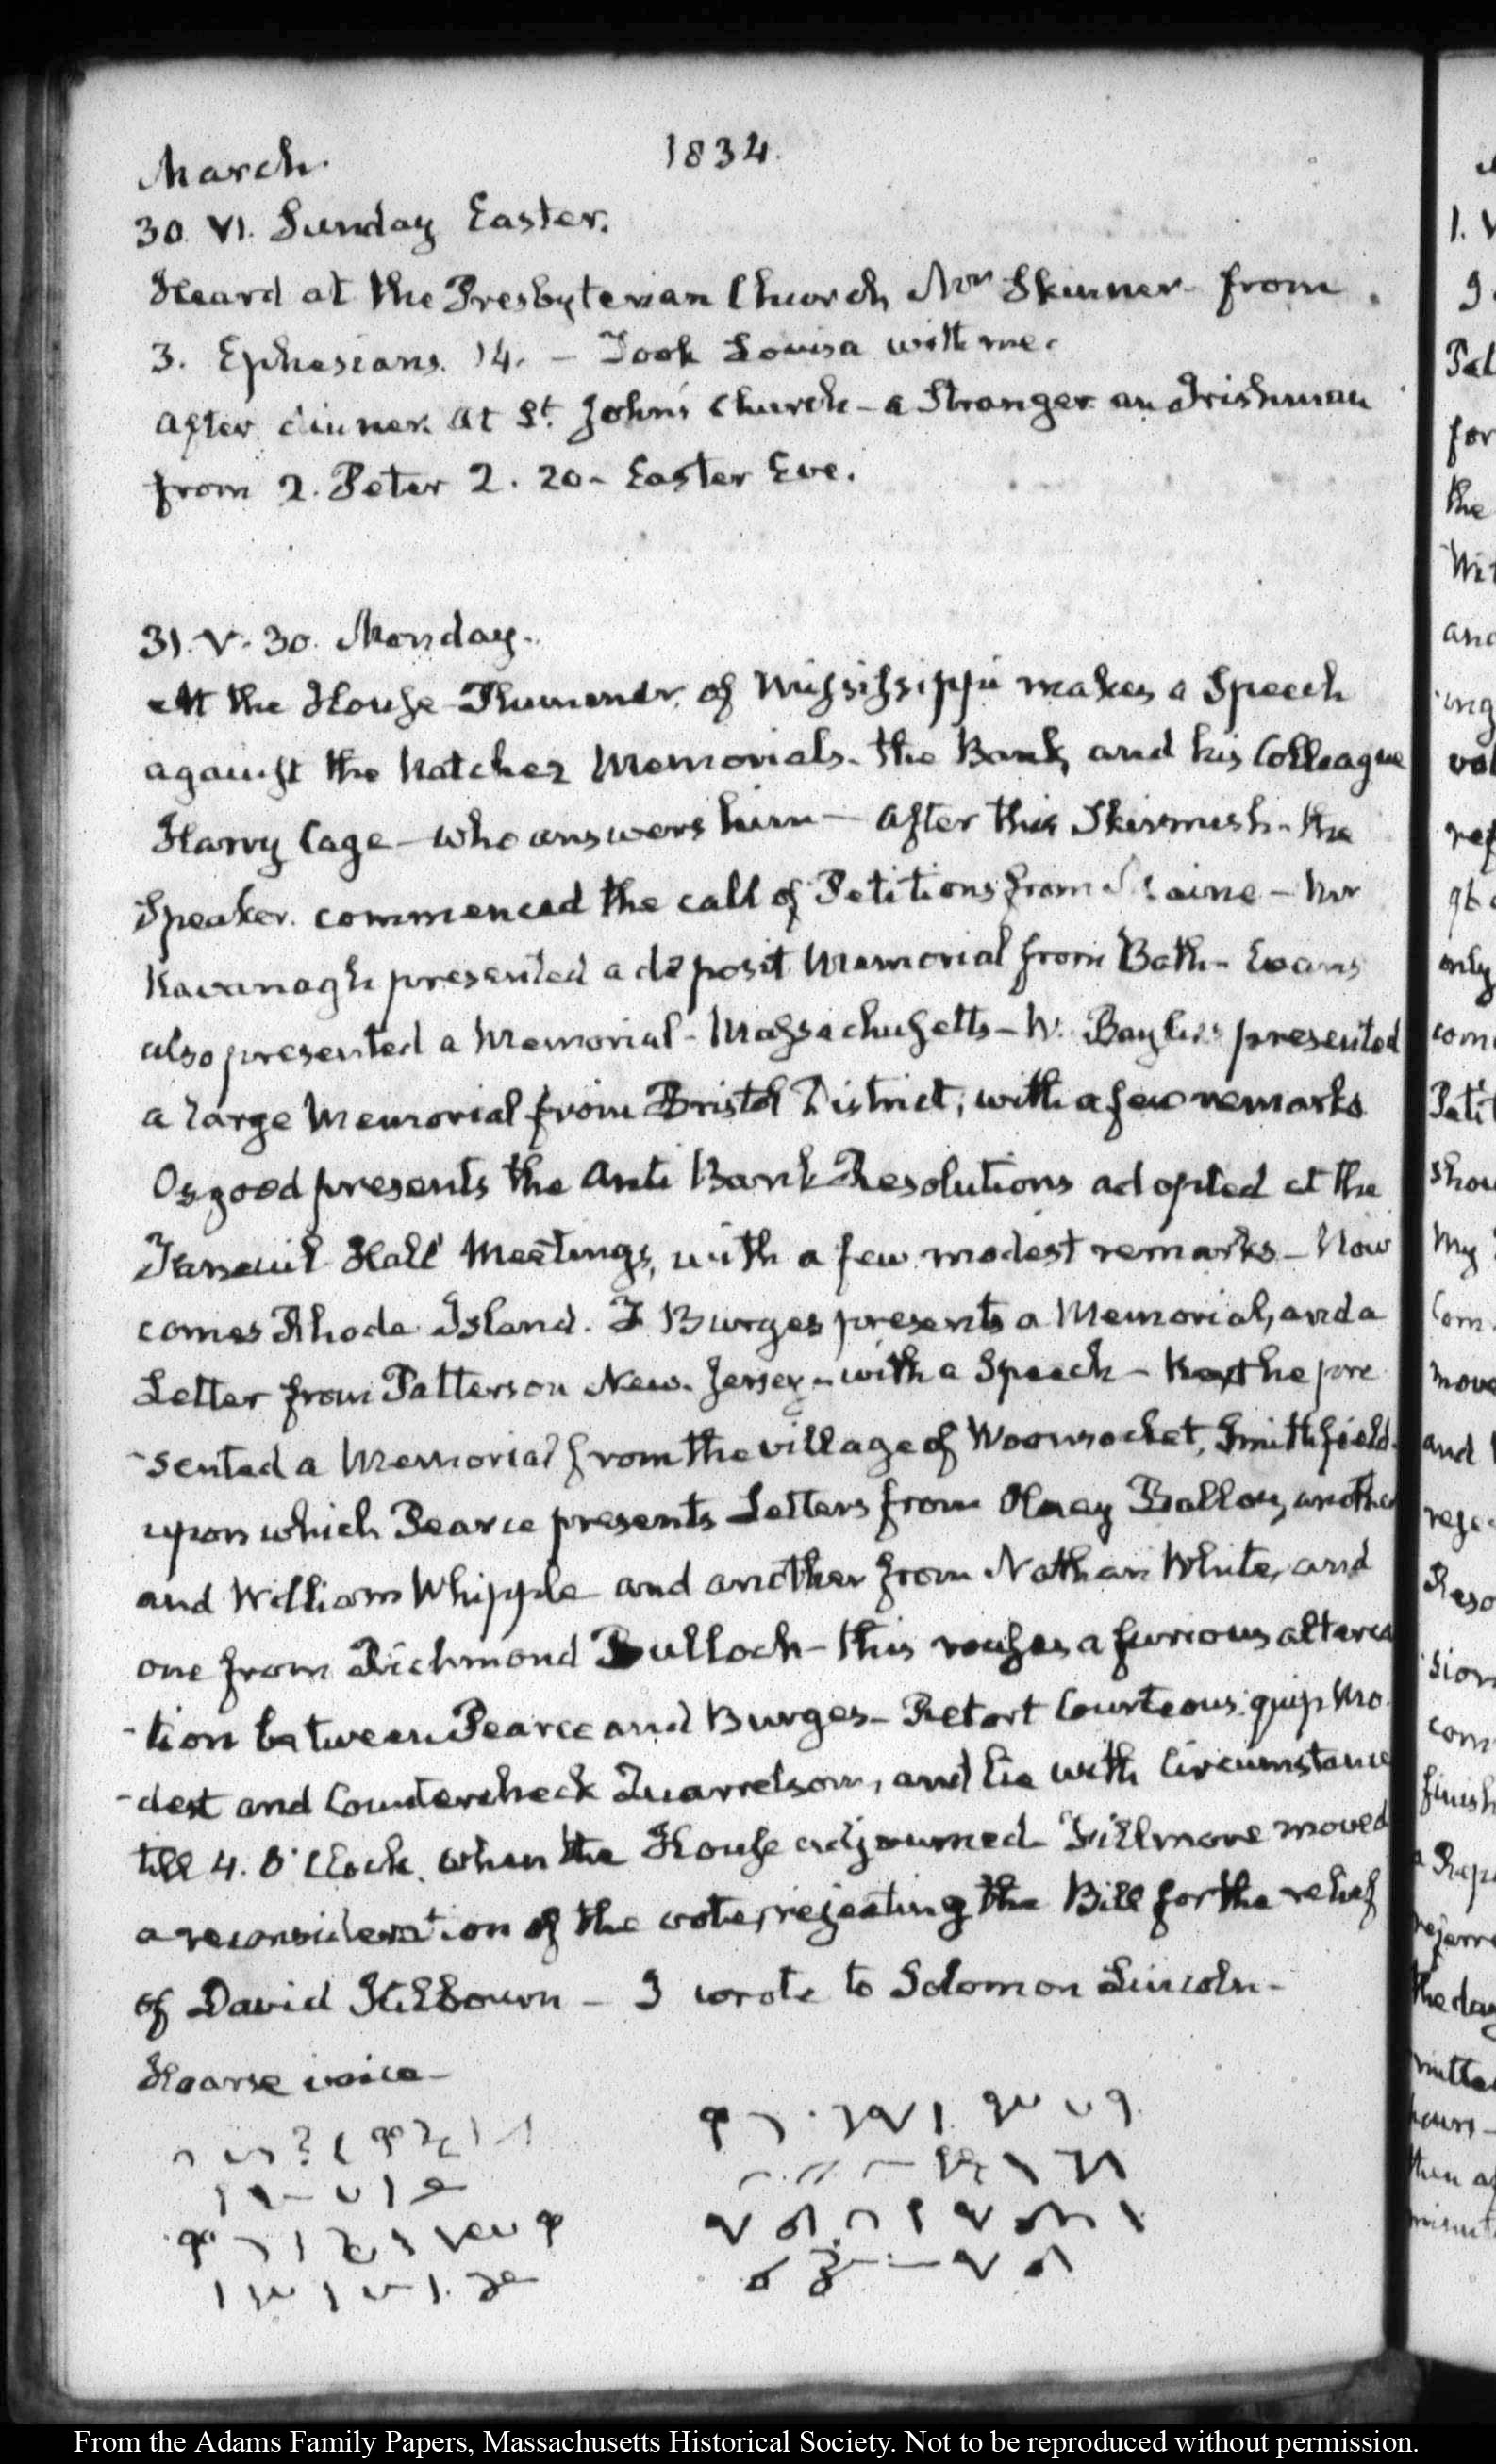 March. 1834.
30. VI. Sunday Easter.
Heard at the Presbyterian Church, Mr Skinner from
3. Ephesians. 14. – Took Louisa with me.
After dinner at St. John's Church – a Stranger an Irishman
from 2. Peter 2. 20 – Easter Eve.
31. V. 30. Monday.
At the House Plummer of Mississippi makes a Speech
against the Natchez Memorials. the Bank, and his Colleague
Harry Cage – who answers him – After this Skirmish – the
Speaker commenced the call of Petitions from Maine – Mr
Kavanagh presented a deposit Memorial from Bath – Evans
also presented a Memorial – Massachusetts – W. Baylies presented
a large Memorial from Bristol District, with a few remarks
Osgood presents the Anti Bank Resolutions adopted at the
Faneuil Hall Meetings, with a few modest remarks – Now
comes Rhode Island. T Burges presents a Memorial, and a
Letter from Patterson New Jersey – with a Speech – Next he pre
-sented a Memorial from the village of Woonsocket, Smithfield.
upon which Pearce presents Letters from Olney Ballou, another
and William Whipple and another from Nathan White, and
one from Richmond Bulloch – this rouses a furious alterca
-tion between Pearce and Burges – Retort Courteous quip Mo
-dest and Countercheck Quarrelsom, and lie with Circumstance
till 4. O'Clock. when the House adjourned – Fillmore moved
a reconsideration of the vote, rejecting the Bill for the relief
of David Kilbourn – I wrote to Solomon Lincoln –
Hoarse voice –
From the Adams Family Papers, Massachusetts Historical Society. Not to be reproduced without permission.